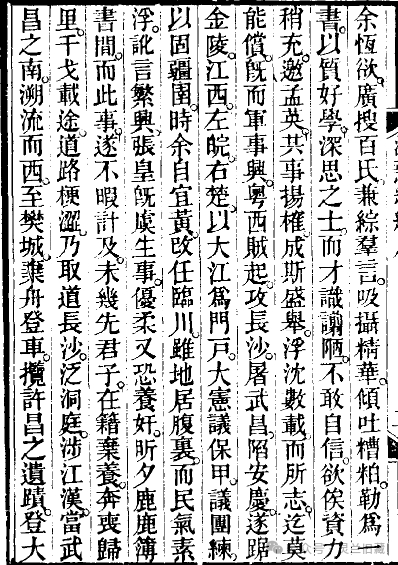 余恆欲廣搜百氏兼綜羣言吸攝精華傾吐糟粕勒爲
書以質好學深思之士而才識謭陋不敢自信欲俟資力
稍充邀孟英共事揚榷成斯盛舉浮沈數載而所志迄莫
能償旣而軍事興粵西賊起攻長沙屠武昌陷安慶遂踞
金陵江西左皖右楚以大江爲門戸大憲議保甲議團練
以固疆圉時余自宜黃改任臨川雖地居腹裏而民氣素
浮訛言繁興張皇旣虞生事優柔又恐養奸昕夕鹿鹿簿
書間而此事遂不暇計及未幾先君子在籍棄養奔喪歸
里干戈載途道路梗澀乃取道長沙泛洞庭涉江漢當武
昌之南溯流而西至樊城棄舟登車攬許昌之遺蹟登大